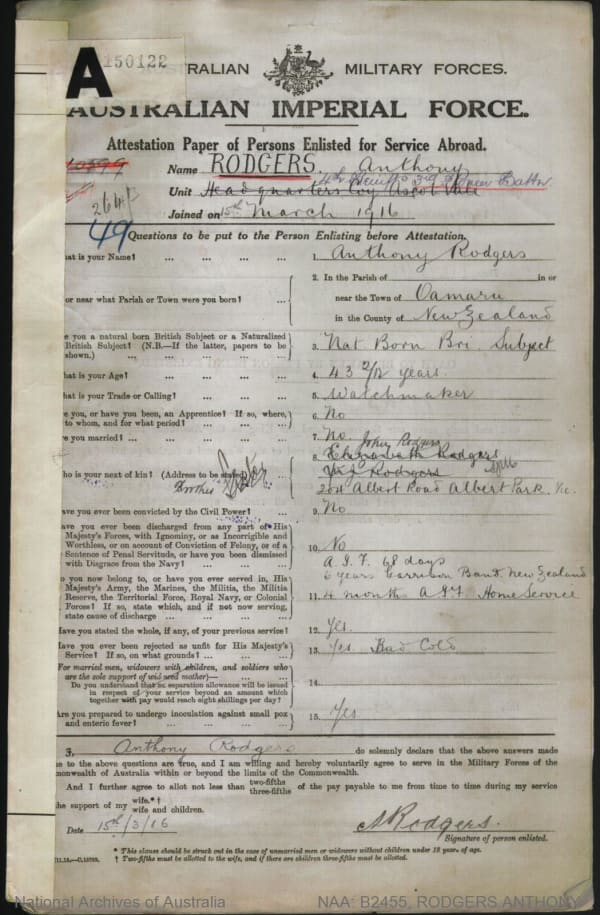 A
150122
TRALIAN MILITARY FORCES.
AUSTRALIAN IMPERIAL FORCE.
Attestation Paper of Persons Enlisted for Service Abroad.
Name RODGERS, Anthony
Unit Headquarters Coy Ascot Vale
Joined on 15th March 1916
49
Questions to be put to the Person Enlisting before Attestation.
hat is your Name? ... ... ... ... 1. Anthony Rodgers
2. In the Parish of in or
or near what Parish or Town were you born? ... near the Town of Oamaru
in the County of New Zealand
e you a natural born British Subject or a Naturalized
British Subject? (N.B.—If the latter, papers to be
shown.) ... ... ... ... 3. Nat Born Bri. Subject
hat is your Age? ... ... ... ... 4. 43 2/12 years.
hat is your Trade or Calling? ... ... ... 5. Watchmaker
e you, or have you been, an Apprentice? If so, where,
to whom, and for what period? ... ... ... 6. No
re you married? ... ... ... ... 7. No
John Rodgers
8. Elizabeth Rodgers
ho is your next of kin? (Address to be stated)
Brother Rodgers
204 Albert Road Albert Park. Vic.
ave you ever been convicted by the Civil Power? ... 9. No
ave you ever been discharged from any part of His
Majesty's Forces, with Ignominy, or as Incorrigible and
Worthless, or on account of Conviction of Felony, or of a
Sentence of Penal Servitude, or have you been dismissed
with Disgrace from the Navy? ... ... ... 10. No
A.I.F. 68 days
6 years Garrison Band New Zealand
o you now belong to, or have you ever served in, His
Majesty's Army, the Marines, the Militia, the Militia
Reserve, the Territorial Force, Royal Navy, or Colonial
Forces? If so, state which, and if not now serving,
state cause of discharge ... ... ... 11. 4 months A.I.F. Home Service
ave you stated the whole, if any, of your previous service? 12. Yes.
ave you ever been rejected as unfit for His Majesty's
Service? If so, on what grounds? ... ... ... 13. Yes Bad Cold
(For married men, widowers with children, and soldiers who
are the sole support of widowed mother)—
Do you understand that no separation allowance will be issued
in respect of your service beyond an amount which
together with pay would reach eight shillings per day? 14.
Are you prepared to undergo inoculation against small pox
and enteric fever? ... ... ... ... 15. Yes
3, Anthony Rodgers do solemnly declare that the above answers made
e to the above questions are true, and I am willing and hereby voluntarily agree to serve in the Military Forces of the
monwealth of Australia within or beyond the limits of the Commonwealth.
And I further agree to allot not less than two-fifths three-fifths of the pay payable to me from time to time during my service
the support of my wife.*† wife and children.
Date 15th/3/16 A Rodgers.
Signature of person enlisted.
* This clause should be struck out in the case of unmarried men or widowers without children under 18 year. of age.
† Two-fifths must be allotted to the wife, and if there are children three-fifths must be allotted.
National Archives of Australia NAA: B2455, RODGERS ANTHONY